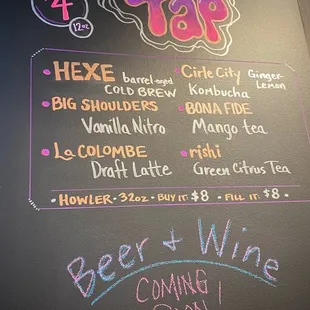 4
12oz
Tap
HEXE barrel-aged
COLD BREW
BIG SHOULDERS
Vanilla Nitro
La COLOMBE
Draft Latte
Cirle City Ginger-
Kombucha Lemon
BONA FIDE
Mango tea
rishi
Green Citrus Tea
HOWLER · 32oz · BUY IT $8 · FILL IT $8 ·
Beer + Wine
COMING
SOON!